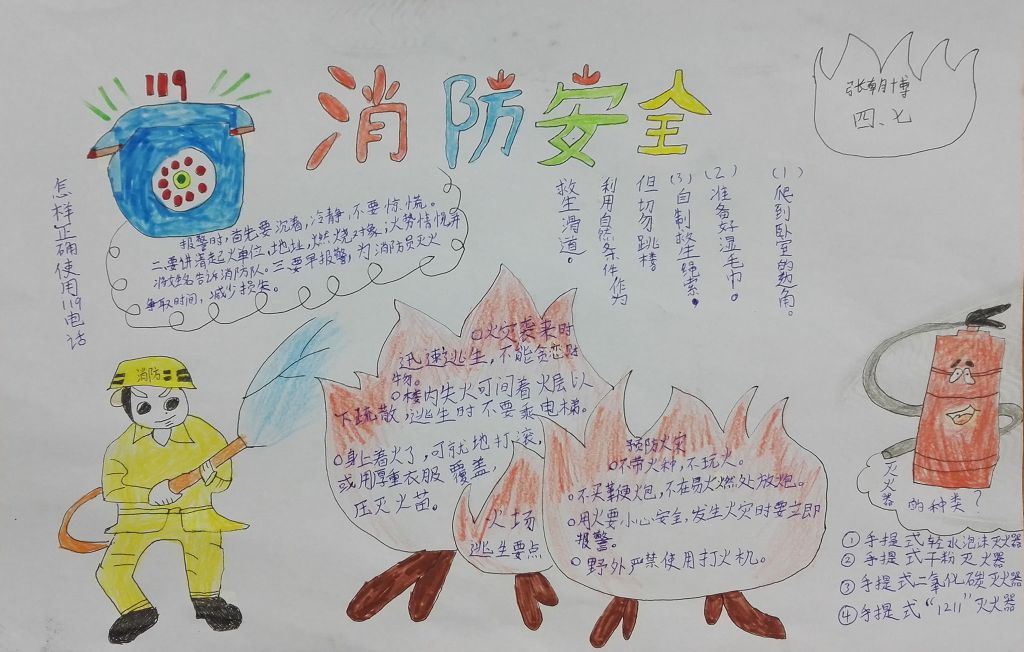 119
消防安全
张朝博
四、七
怎样正确使用119电话
报警时,首先要沉着,冷静,不要惊慌。
二要讲清起火单位,地址,燃烧对象,火势情况并
将姓名告诉消防队。三要早报警,为消防员灭火
争取时间,减少损失。
(1)爬到卧室的
(2)准备好湿毛巾。
(3)自制救生绳索。
但切勿跳楼
利用自然条件作为
救生滑道。
消防
火灾袭来时
迅速逃生,不能贪恋财
物。
楼内失火可间着火层以
下疏散,逃生时不要乘电梯。
身上着火了,可就地打滚,
或用厚重衣服覆盖,
压灭火苗。
火场
逃生要点
预防火灾
不带火种,不玩火。
不买鞭炮,不在易火燃处放炮。
用火要小心安全,发生火灾时要立即
报警。
野外严禁使用打火机。
灭火器
的种类?
①手提式轻水泡沫灭火器
②手提式干粉灭火器
③手提式二氧化碳灭火器
④手提式“1211”灭火器